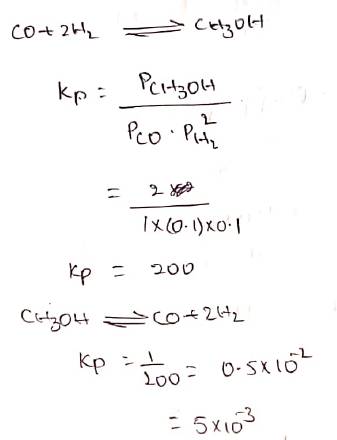 CO + 2H₂ ⇌ CH₃OH
Kp = P_CH₃OH / P_CO · P_H₂²
= 2 / 1×(0.1)×0.1
Kp = 200
CH₃OH ⇌ CO + 2H₂
Kp = 1/200 = 0.5×10⁻²
= 5×10⁻³